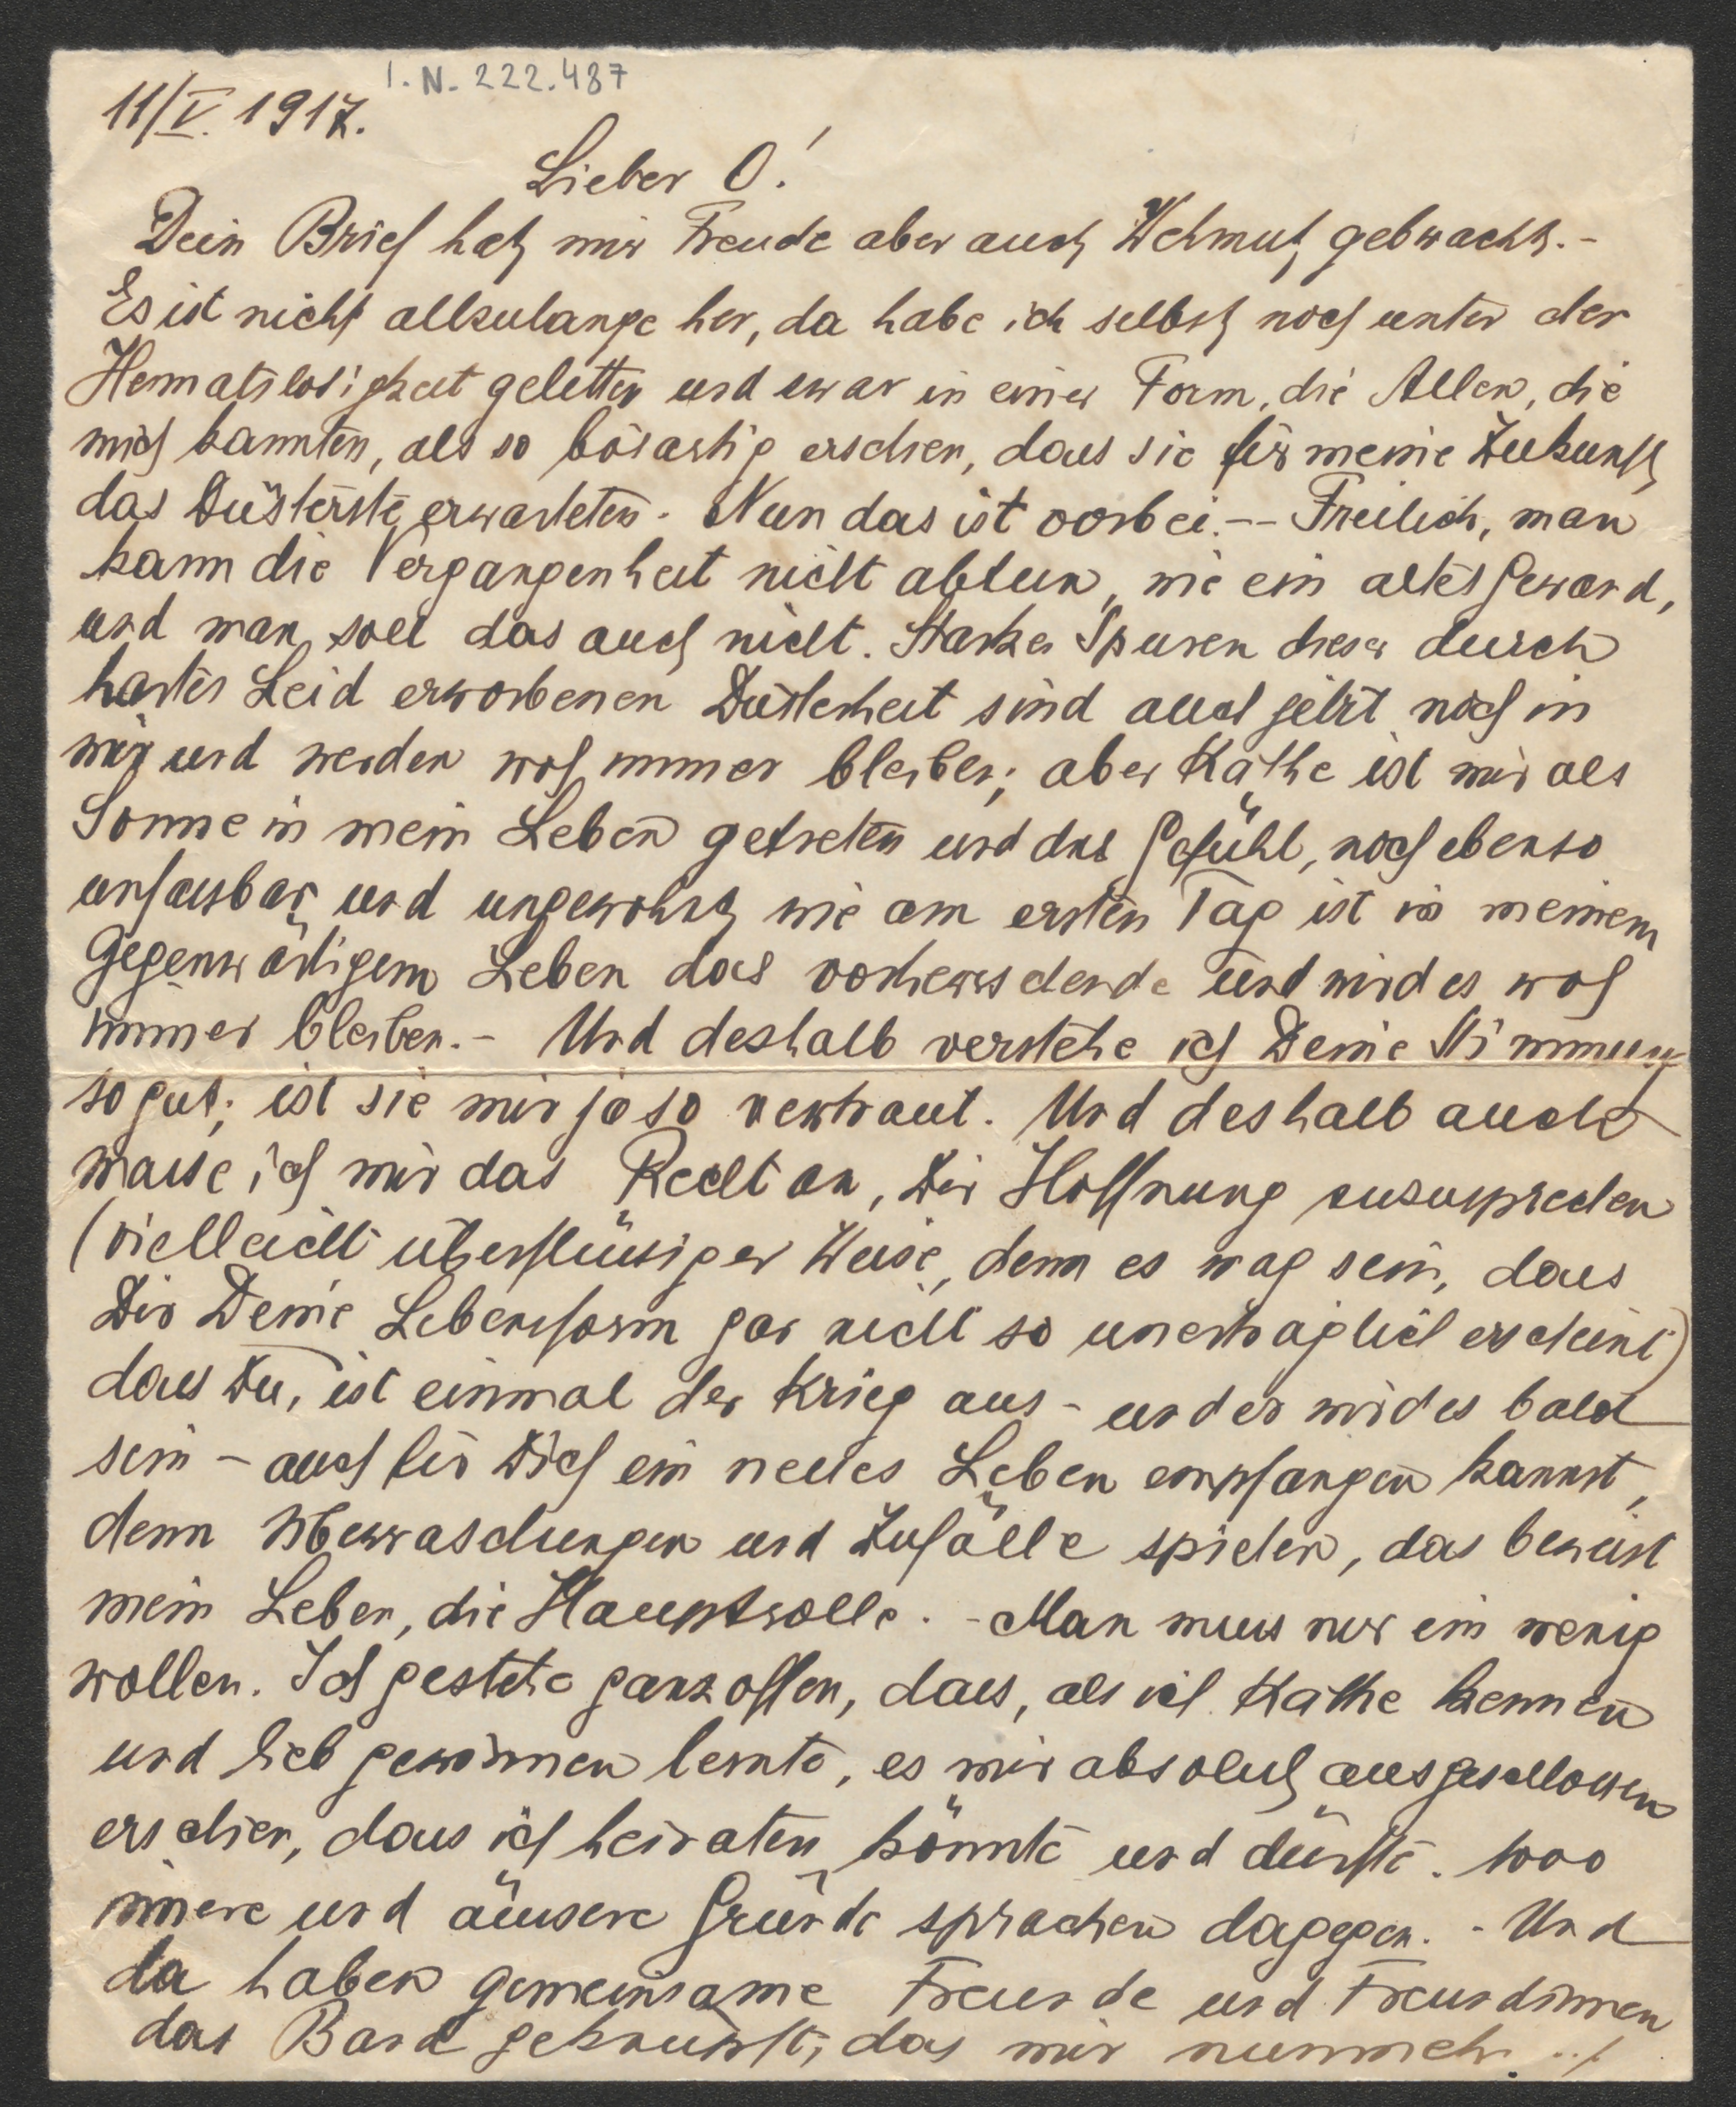 I.N. 222.487
11/V. 1917.
Lieber O!
Dein Brief hat mir Freude aber auch Wehmut gebracht.-
Es ist nicht allzulange her, da habe ich selbst noch unter der
Heimatslosigkeit gelitten und zwar in einer Form, die Allen, die
mich kannten, als so bösartig erschien, dass sie für meine Zukunft
das Düsterste erwarteten. Nun das ist vorbei.-- Freilich, man
kann die Vergangenheit nicht abtun, wie ein altes Gewand,
und man soll das auch nicht. Starke Spuren dieser durch
hartes Leid erworbenen Düsterheit sind auch jetzt noch in
mir und werden woh immer bleiben; aber Käthe ist mir als
Sonne in mein Leben getreten und das Gefühl, noch ebenso
unfassbar und ungewohnt wie am ersten Tag ist in meinem
gegenwärtigem Leben das vorherrschende und wird es woh
immer bleiben.- Und deshalb verstehe ich Deine Stimmung
so gut; ist sie mir ja so vertraut. Und deshalb auch
masse ich mir das Recht an, Dir Hoffnung zuzusprechen
(vielleicht überflüssiger Weise, denn es mag sein, dass
Dir Deine Lebensform gar nicht so unerträglich erscheint)
dass Du, ist einmal der Krieg aus - und er wird es bald
sein - auch für Dich ein neues Leben empfangen kannst,
denn Überraschungen und Zufälle spielen, das beweist
mein Leben, die Hauptrolle. - Man muss nur ein wenig
wollen. Ich gestehe ganz offen, dass, als ich Käthe kennen
und lieb gewinnen lernte, es mir absolut ausgeschlossen
erschien, dass ich heiraten könnte und dürfte. 1000
innere und äussere Gründe sprachen dagegen. - Und
da haben gemeinsame Freunde und Freundinnen
das Band geknüpft, das mir nunmehr ./.